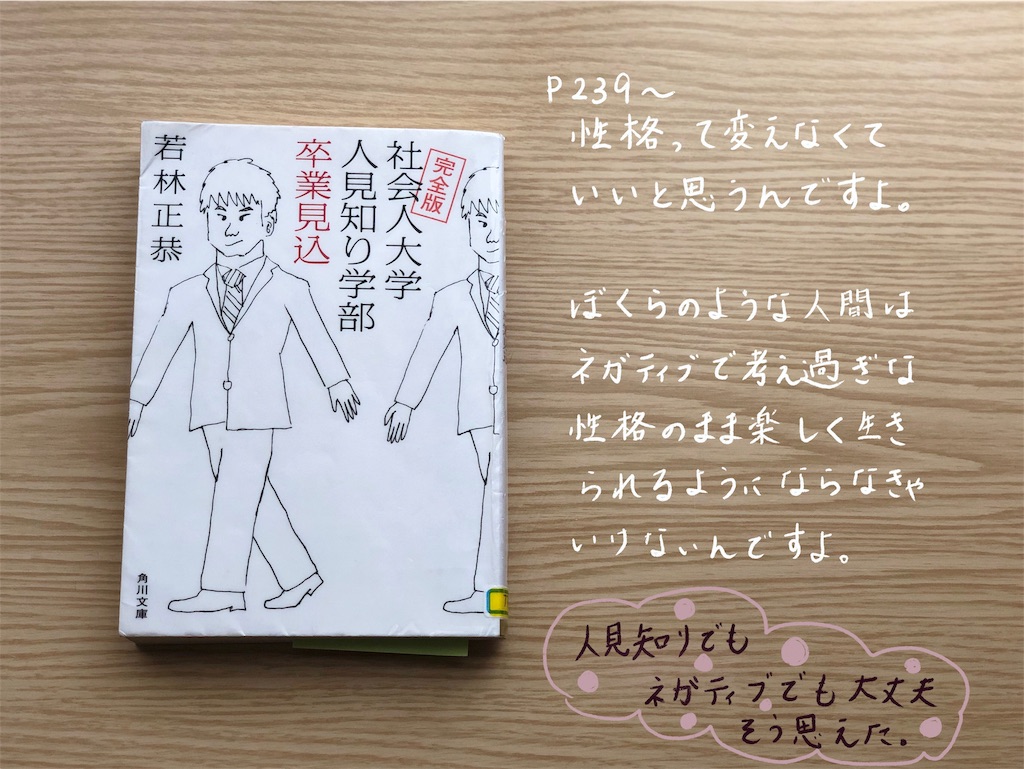 完全版
社会人大学
人見知り学部
卒業見込
若林正恭
角川文庫
P239〜
性格って変えなくて
いいと思うんですよ。
ぼくらのような人間は
ネガティブで考え過ぎな
性格のまま楽しく生き
られるようにならなきゃ
いけないんですよ。
人見知りでも
ネガティブでも大丈夫
そう思えた。